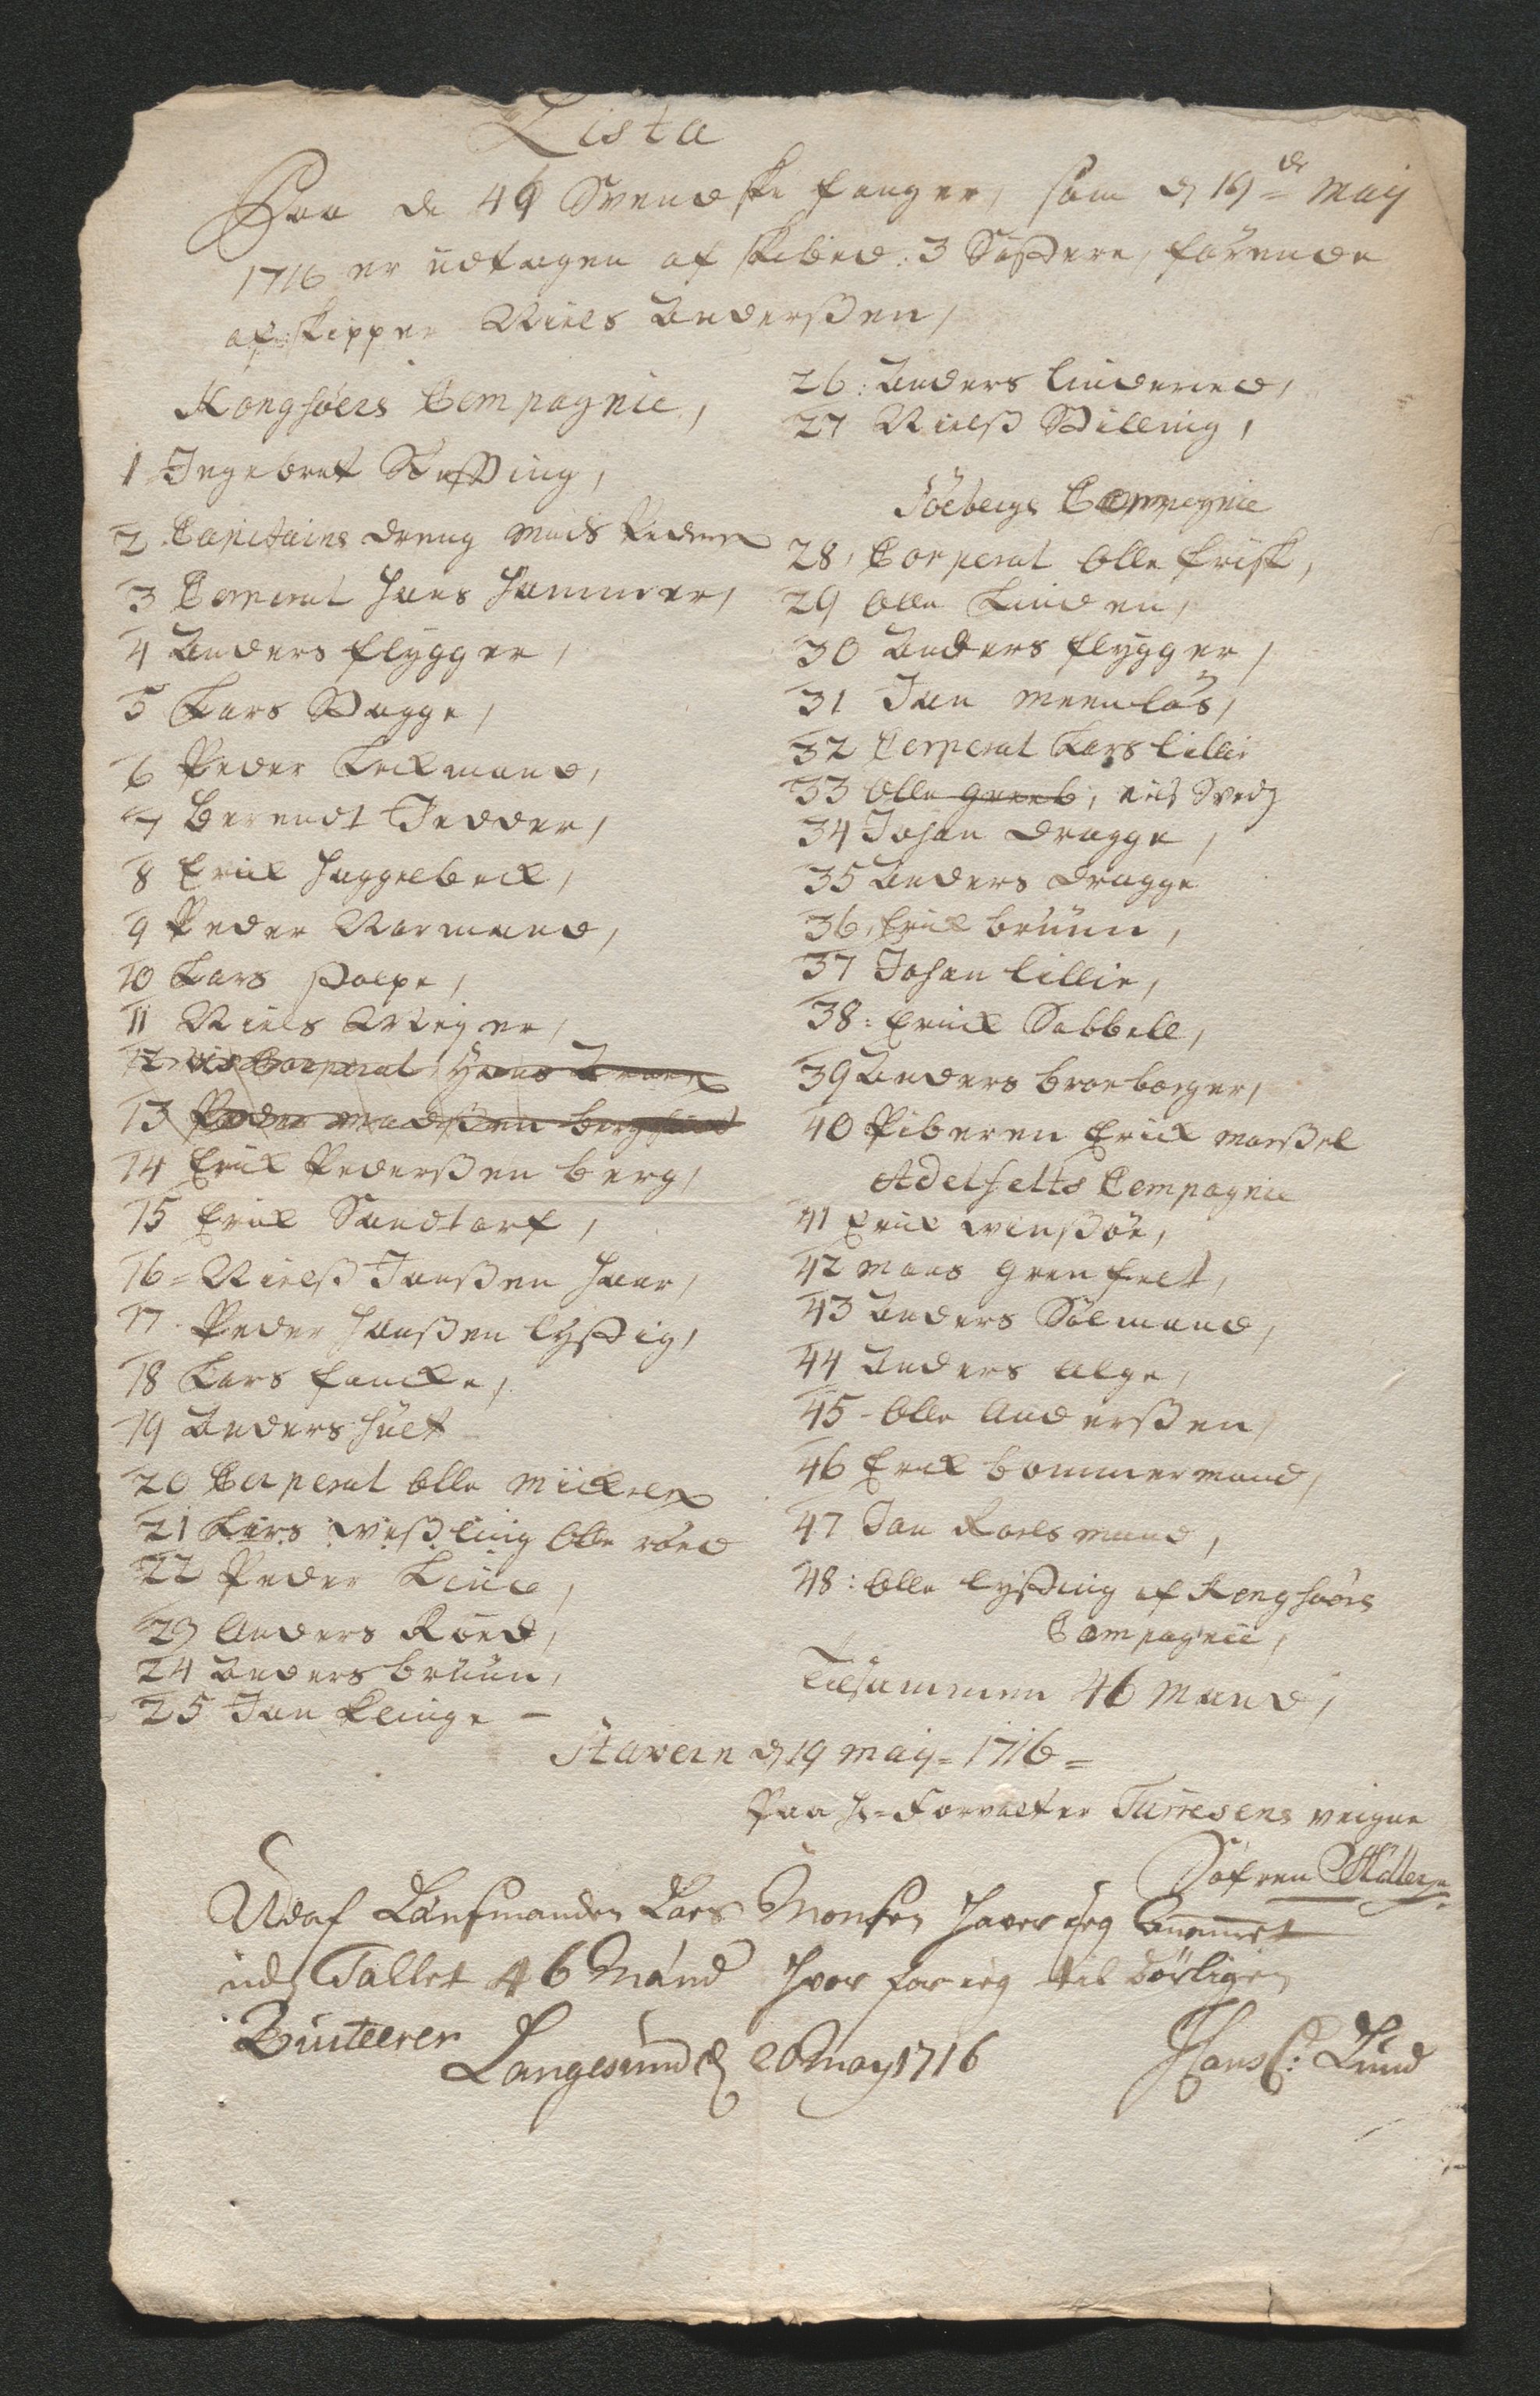 Lista
Paa de 46 Svendske fanger, som d 19de Maij
1716 er udtagen af skibed: 3 Søstre, førende
af skipper Niels Anderßen,
Kongsöers Compagnie,
1 Ingebret
2 Capitains dreng Mads Peders
3 Corporal Hans Hammer,
4 Anders flygger,
5 Lars Stagge,
6 Peder Leckmand,
7 Berendt Tedder,
8 Erick Haggelbeck,
9 Peder Normand,
10 Lars Stolpe,
11 Niels
12 Corporal Hans
13 Peder Madßen
14 Erick Pederßen berg,
15 Erick Sandtorf,
16 = Nielß Janßen Haar,
17 Peder Hanßen lystig,
18 Lars fancke,
19 Anders Hult
20 Corperal Olle Mickels
21 Lars Weßling Olle röed
22 Peder Lind,
23 Anders Röed,
24 Anders bruun,
25 Jan Klinge –
26: Anders linderud,
27 Nielß Stilling,
Söebergs Compagnie
28, Corperal Olle frisk,
29 Olle Linden,
30 Anders flygger,
31 Jan meenlös,
32 Corperal Lars lillie
33 Olle Greeb,
34 Johan dragge,
35 Anders dragge
36, Erick bruun,
37 Johan lillie,
38: Erick Sabbell,
39 Anders broeborger,
40 Piberen Erick morßel
Adelfelts Compagnie
41 Erick winßöe,
42 Mons Grenfelt,
43 Anders Sölmand,
44 Anders Alge,
45 - Olle Anderßen,
46 Erick bommermand,
47 Jan Roelsmand,
48: Olle lysting af Kongsöers
Compagnie,
Tilsammen 46 Mand,
Stavern d 19 Maij = 1716 =
Paa Hr = Forvalter Turresens veigne
Söfren Møller
Udaf Länsmanden Lars Monsen Haver jeg Annammet
ud Tallet 46 Mand hvor for jeg til börligen
Qviteerer
Langesund d 20 May 1716
Hans C: Lund